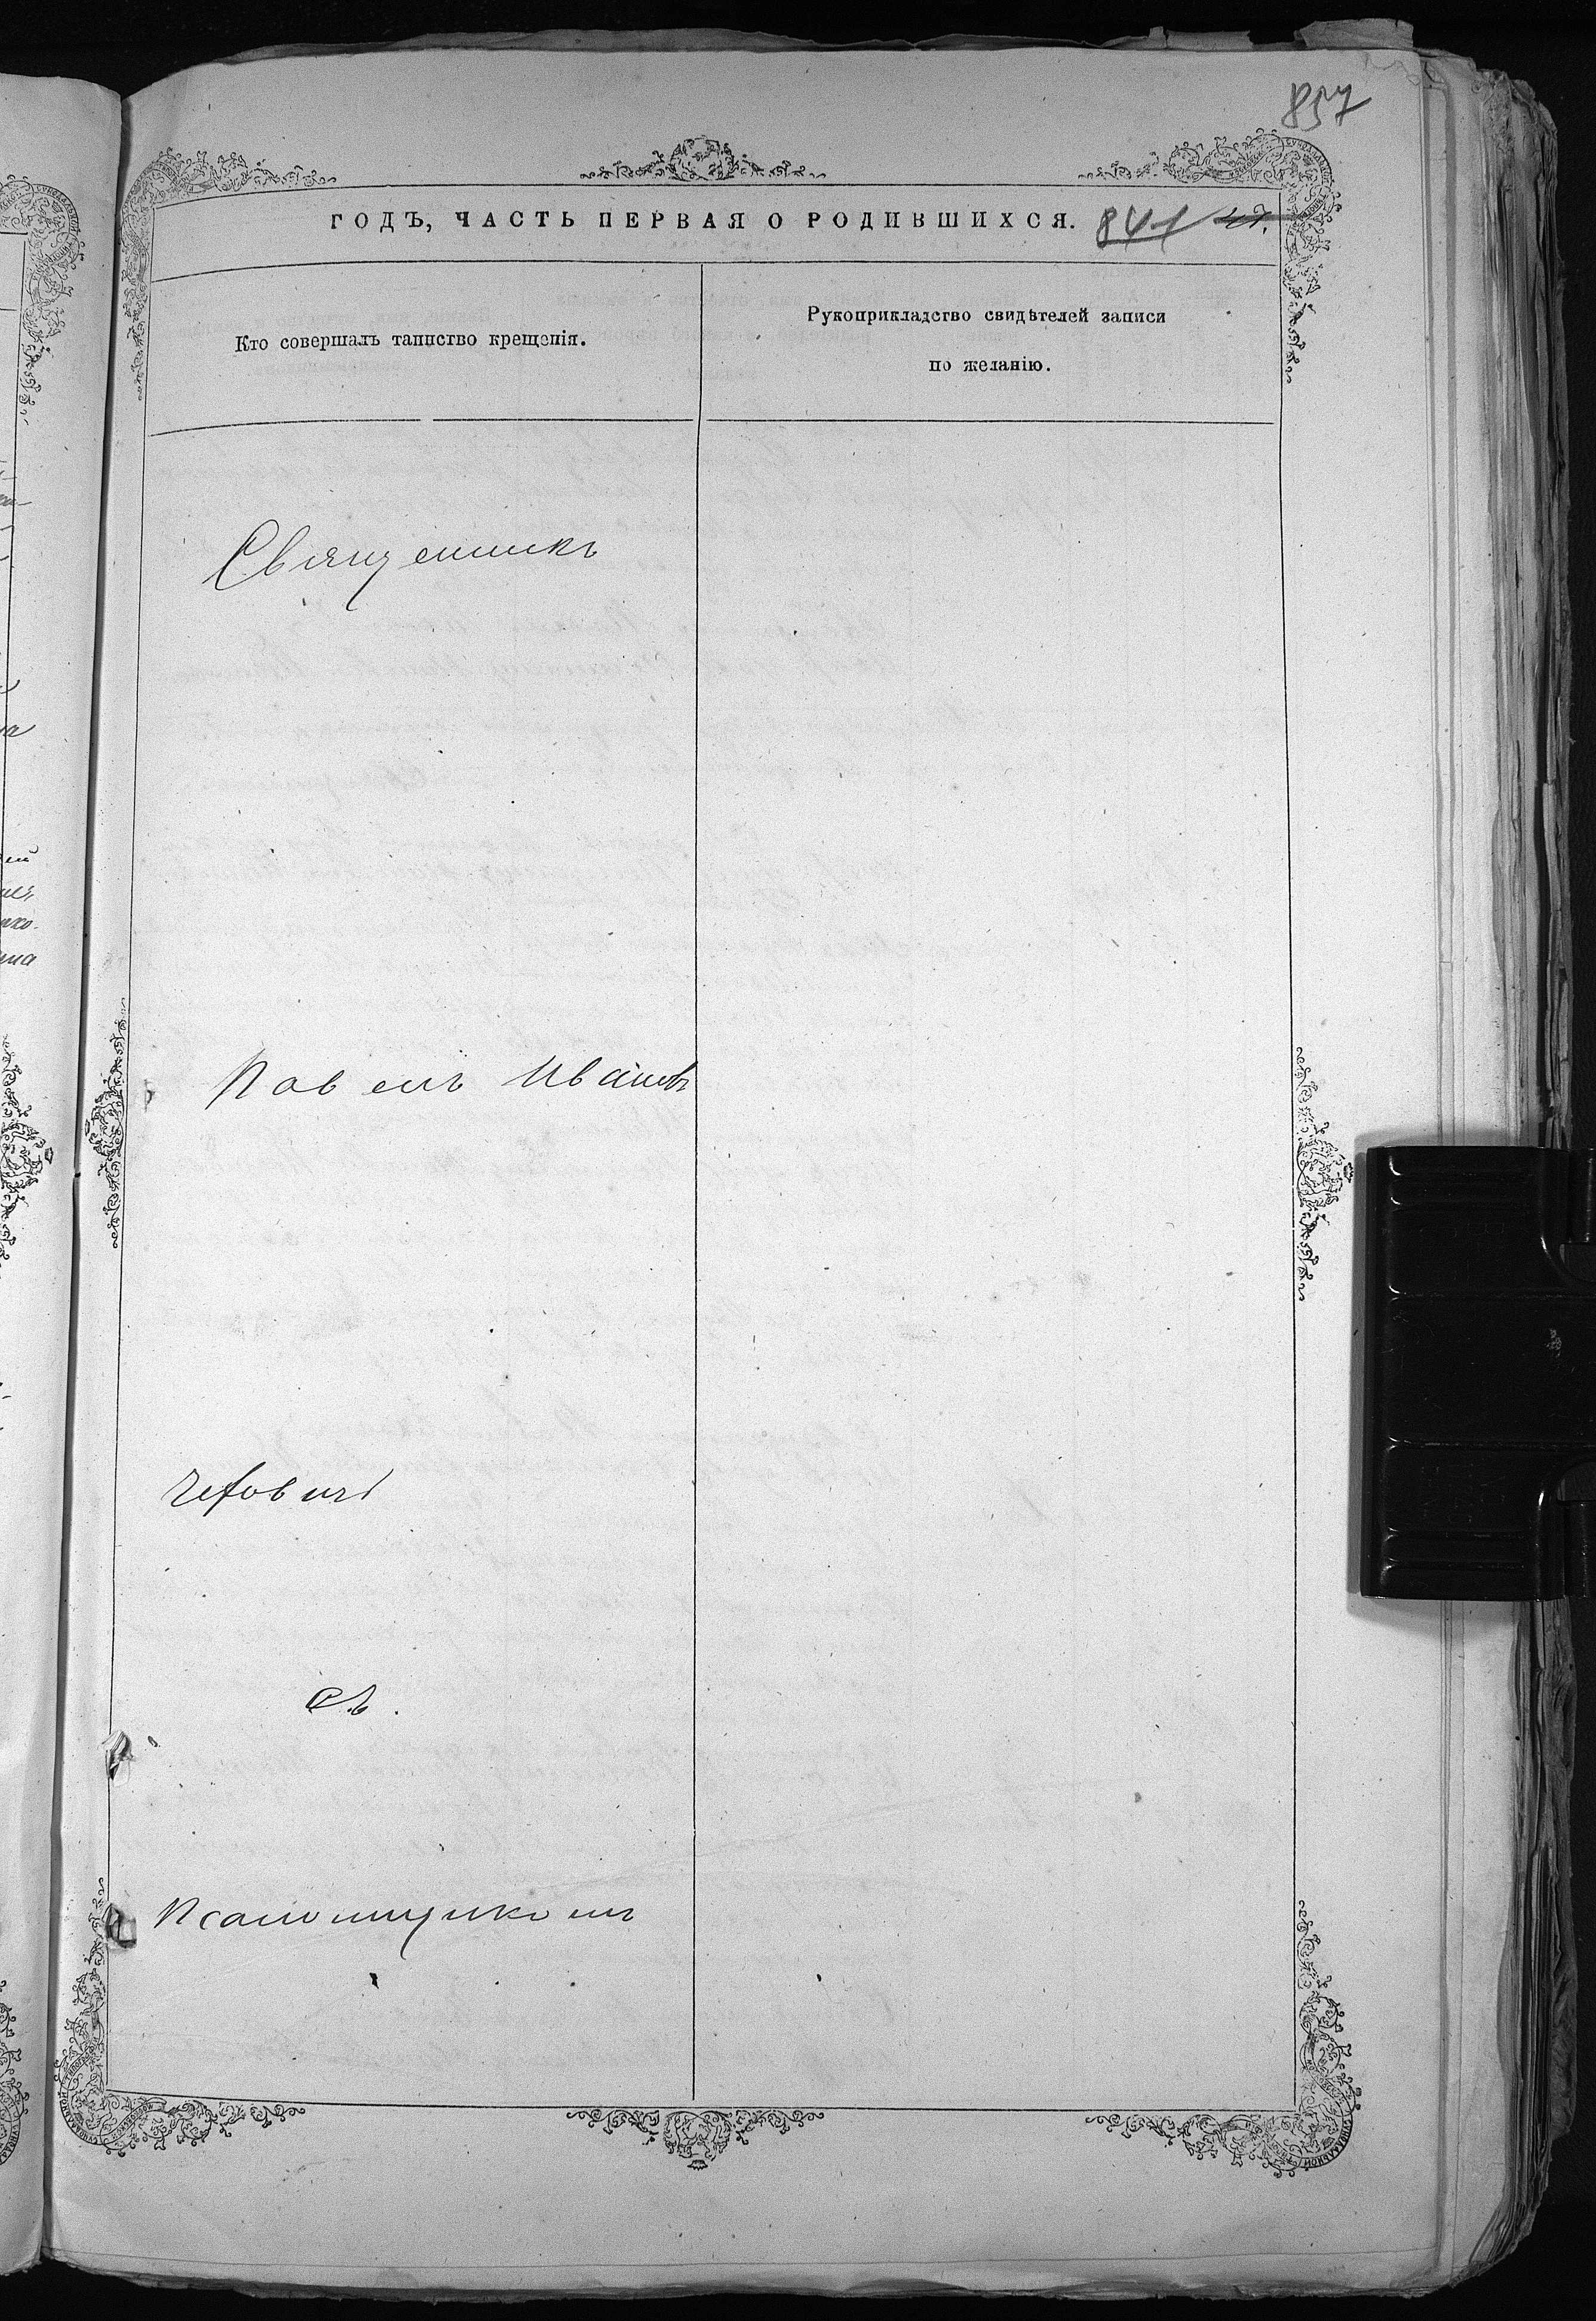 857
ГОДЪ, ЧАСТЬ ПЕРВАЯ О РОДИВШИХСЯ. 841 47.
Кто совершалъ таинство крещенія.
Рукоприкладство свидѣтелей записи
по желанію.
Священникъ
Павелъ Ивановъ
съ
Псаломщикомъ